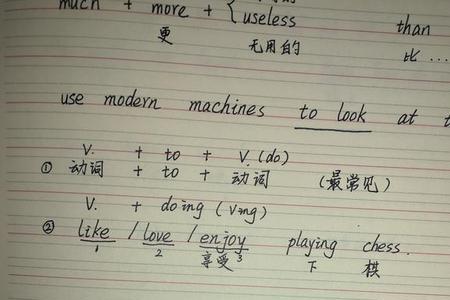 much + more + { useless than
更 无用的 比...
use modern machines to look at
V. + to + V.(do)
① 动词 + to + 动词 (最常见)
V. + doing (Ving)
② like / love / enjoy playing chess.
1 2 享受 3 下 棋